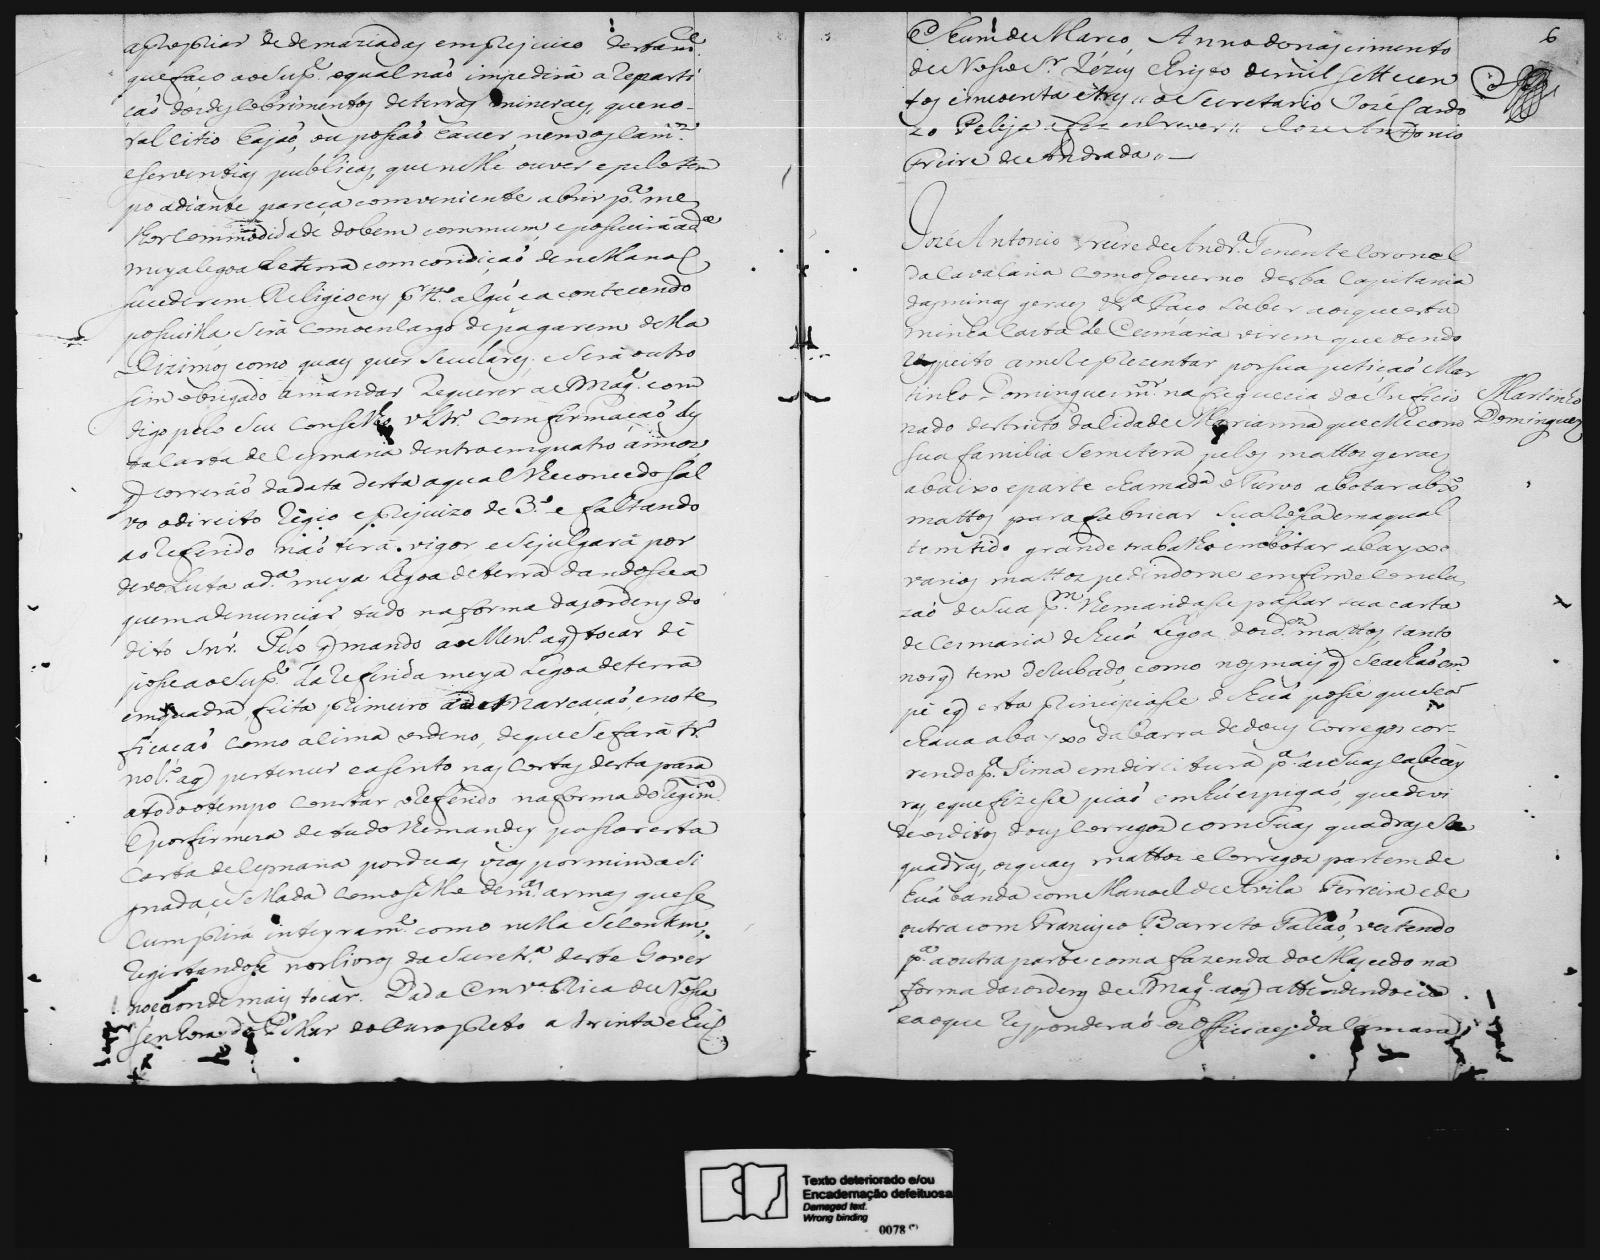 apropriar de demaziadas em prejuizo desta m.ce
que faço ao Sup.e o qual não impedirá a reparti
ção dos descobrimentos de terras mineraes, que no
tal citio hajão, ou possão haver, nem os cam.os
e serventias publicas, que nelle ouver e pelo tem
po adiante pareça conveniente abrir p.a me
lhor commodidade do bem commum e possuirá a d.a
meya legoa de terra com condição de nella não
sucederem Religioens p.r tt.o algũ e acontecendo
possuilla será com o encargo de pagarem della
Dizimos como quaes quer seculares, e será outro
sim obrigado a mandar requerer a S. Mag.e com
digo pelo seu Conselho Ultr.o comfirmação des
ta carta de cesmaria dentro em quatro annos
q correrão da data desta a qual lhe concedo sal
vo o direito regio e prejuizo de 3.o e faltando
ao referido não terá vigor e se julgará por
devoluta a d.a meya legoa de terra dandosse a
quem a denunciar tudo na forma das ordens do
dito Snr. Pelo q mando ao Men.o a q tocar dê
posse ao Sup.e da referida meya legoa de terra
em quadra feita primeiro a demarcação e note
ficação como a sima ordeno, de que se fará tr.o
no l.o a q pertencer e asento nas costas desta para
a todo o tempo constar o referido na forma do regim.to
E por firmeza de tudo lhe mandey passar esta
Carta de Cesmaria por duas vias por mim asi
gnada, e sellada com o sello de m.as armas que se
cumprirá inteyram.e como nella se contem,
registandosse nos livros da Secret.a deste Gover
no e aonde mais tocar. Dada em V.a Rica de Nossa
Senhora do Pillar do Ouro preto a trinta e hũ
6
E hum de Março Anno do nascimento
de Nosso Sr. Jezus Christo de mil sette cen
tos e sincoenta e tres o Secretario Jozé Cardo
zo Peleja a fez escrever Joze Antonio
Freire de Andrada
Jozé Antonio Freire de Andr.a Tenente Coronel
da Cavalaria com o Governo desta Capitania
das minas geraes & a Faço saber aos que esta
minha Carta de Cesmaria virem que tendo
respeito a me reprezentar por sua petição Mar
tinho Domingues m.or na freguezia do Inficio
nado destrito da Cidade Marianna que elle com
sua familia se metera pelos mattos geraes
abaixo e parte chamada o Turvo a botar abx.o
mattos para fabricar sua rossa em a qual
tem tido grande trabalho em botar abayxo
varios mattos pedindome em fim e conclu
zão de sua p.m lhe mandasse passar sua carta
de Cesmaria de huã legoa dos d.os mattos tanto
nos q tem derubado, como nos mais q se achão em
pe e q esta principiasse de huã posse que se
achava abayxo da barra de dous corregos cor
rendo p.a sima em direitura p.a as suas cabecey
ras, e que fizesse pião em hũ espigão, que devi
de os ditos dous corregos com suas quadras e so
quadras, os quaes mattos e corregos partem de
huã banda com Manoel de Avila Ferreira e de
outra com Francisco Barreto Falcão, vertendo
p.a a outra parte com a fazenda do Macedo na
forma das ordens de S. Mag.e ao q attendendo eu
e ao que responderão os officiaes da Camara
Martinho
Domingues
Texto deteriorado e/ou
Encadernação defeituosa
Damaged text.
Wrong binding
0078 (*)